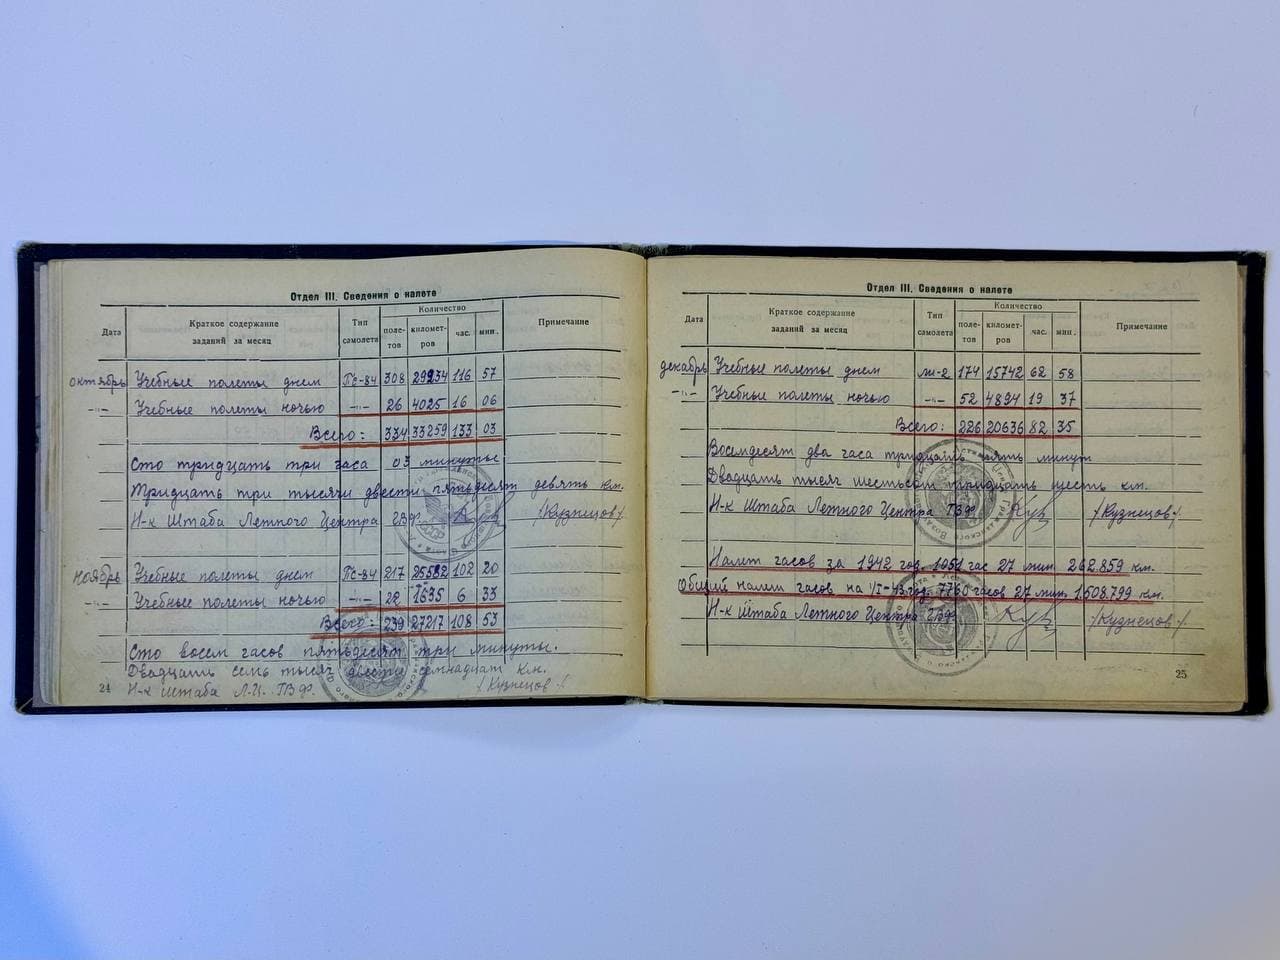 Отдел III. Сведения о налете
Дата Краткое содержание заданий за месяц Тип самолета Количество Примечание
поле-тов километ-ров час. мин.
октябрь Учебные полеты днем ПС-84 308 29234 116 57
-"- Учебные полеты ночью -"- 26 4025 16 06
Всего: 334 33259 133 03
Сто тридцать три часа 03 минуты
Тридцать три тысячи двести пятьдесят девять км.
Н-к Штаба Летного Центра ГВФ. /Кузнецов/.
ноябрь Учебные полеты днем ПС-84 217 25582 102 20
-"- Учебные полеты ночью -"- 22 1635 6 33
Всего: 239 27217 108 53
Сто восем часов пятьдесят три минуты.
Двадцать семь тысяч двести семнадцат км.
Н-к штаба Л.Ц. ГВФ. /Кузнецов/
24
Отдел III. Сведения о налете
Дата Краткое содержание заданий за месяц Тип самолета Количество Примечание
поле-тов километ-ров час. мин.
декабрь Учебные полеты днем ли-2 174 15742 62 58
-"- Учебные полеты ночью -"- 52 4894 19 37
Всего: 226 20636 82 35
Восемдесят два часа тридцать пять минут
Двадцать тысяч шестьсот тридцать шесть км.
Н-к Штаба Летного Центра ГВФ. /Кузнецов/.
Налет часов за 1942 год 1051 час 27 мин. 262.859 км.
Общий налет часов на 1/I-43 год. 7760 часов 27 мин. 1.508.799 км.
Н-к Штаба Летного Центра ГВФ /Кузнецов/.
25